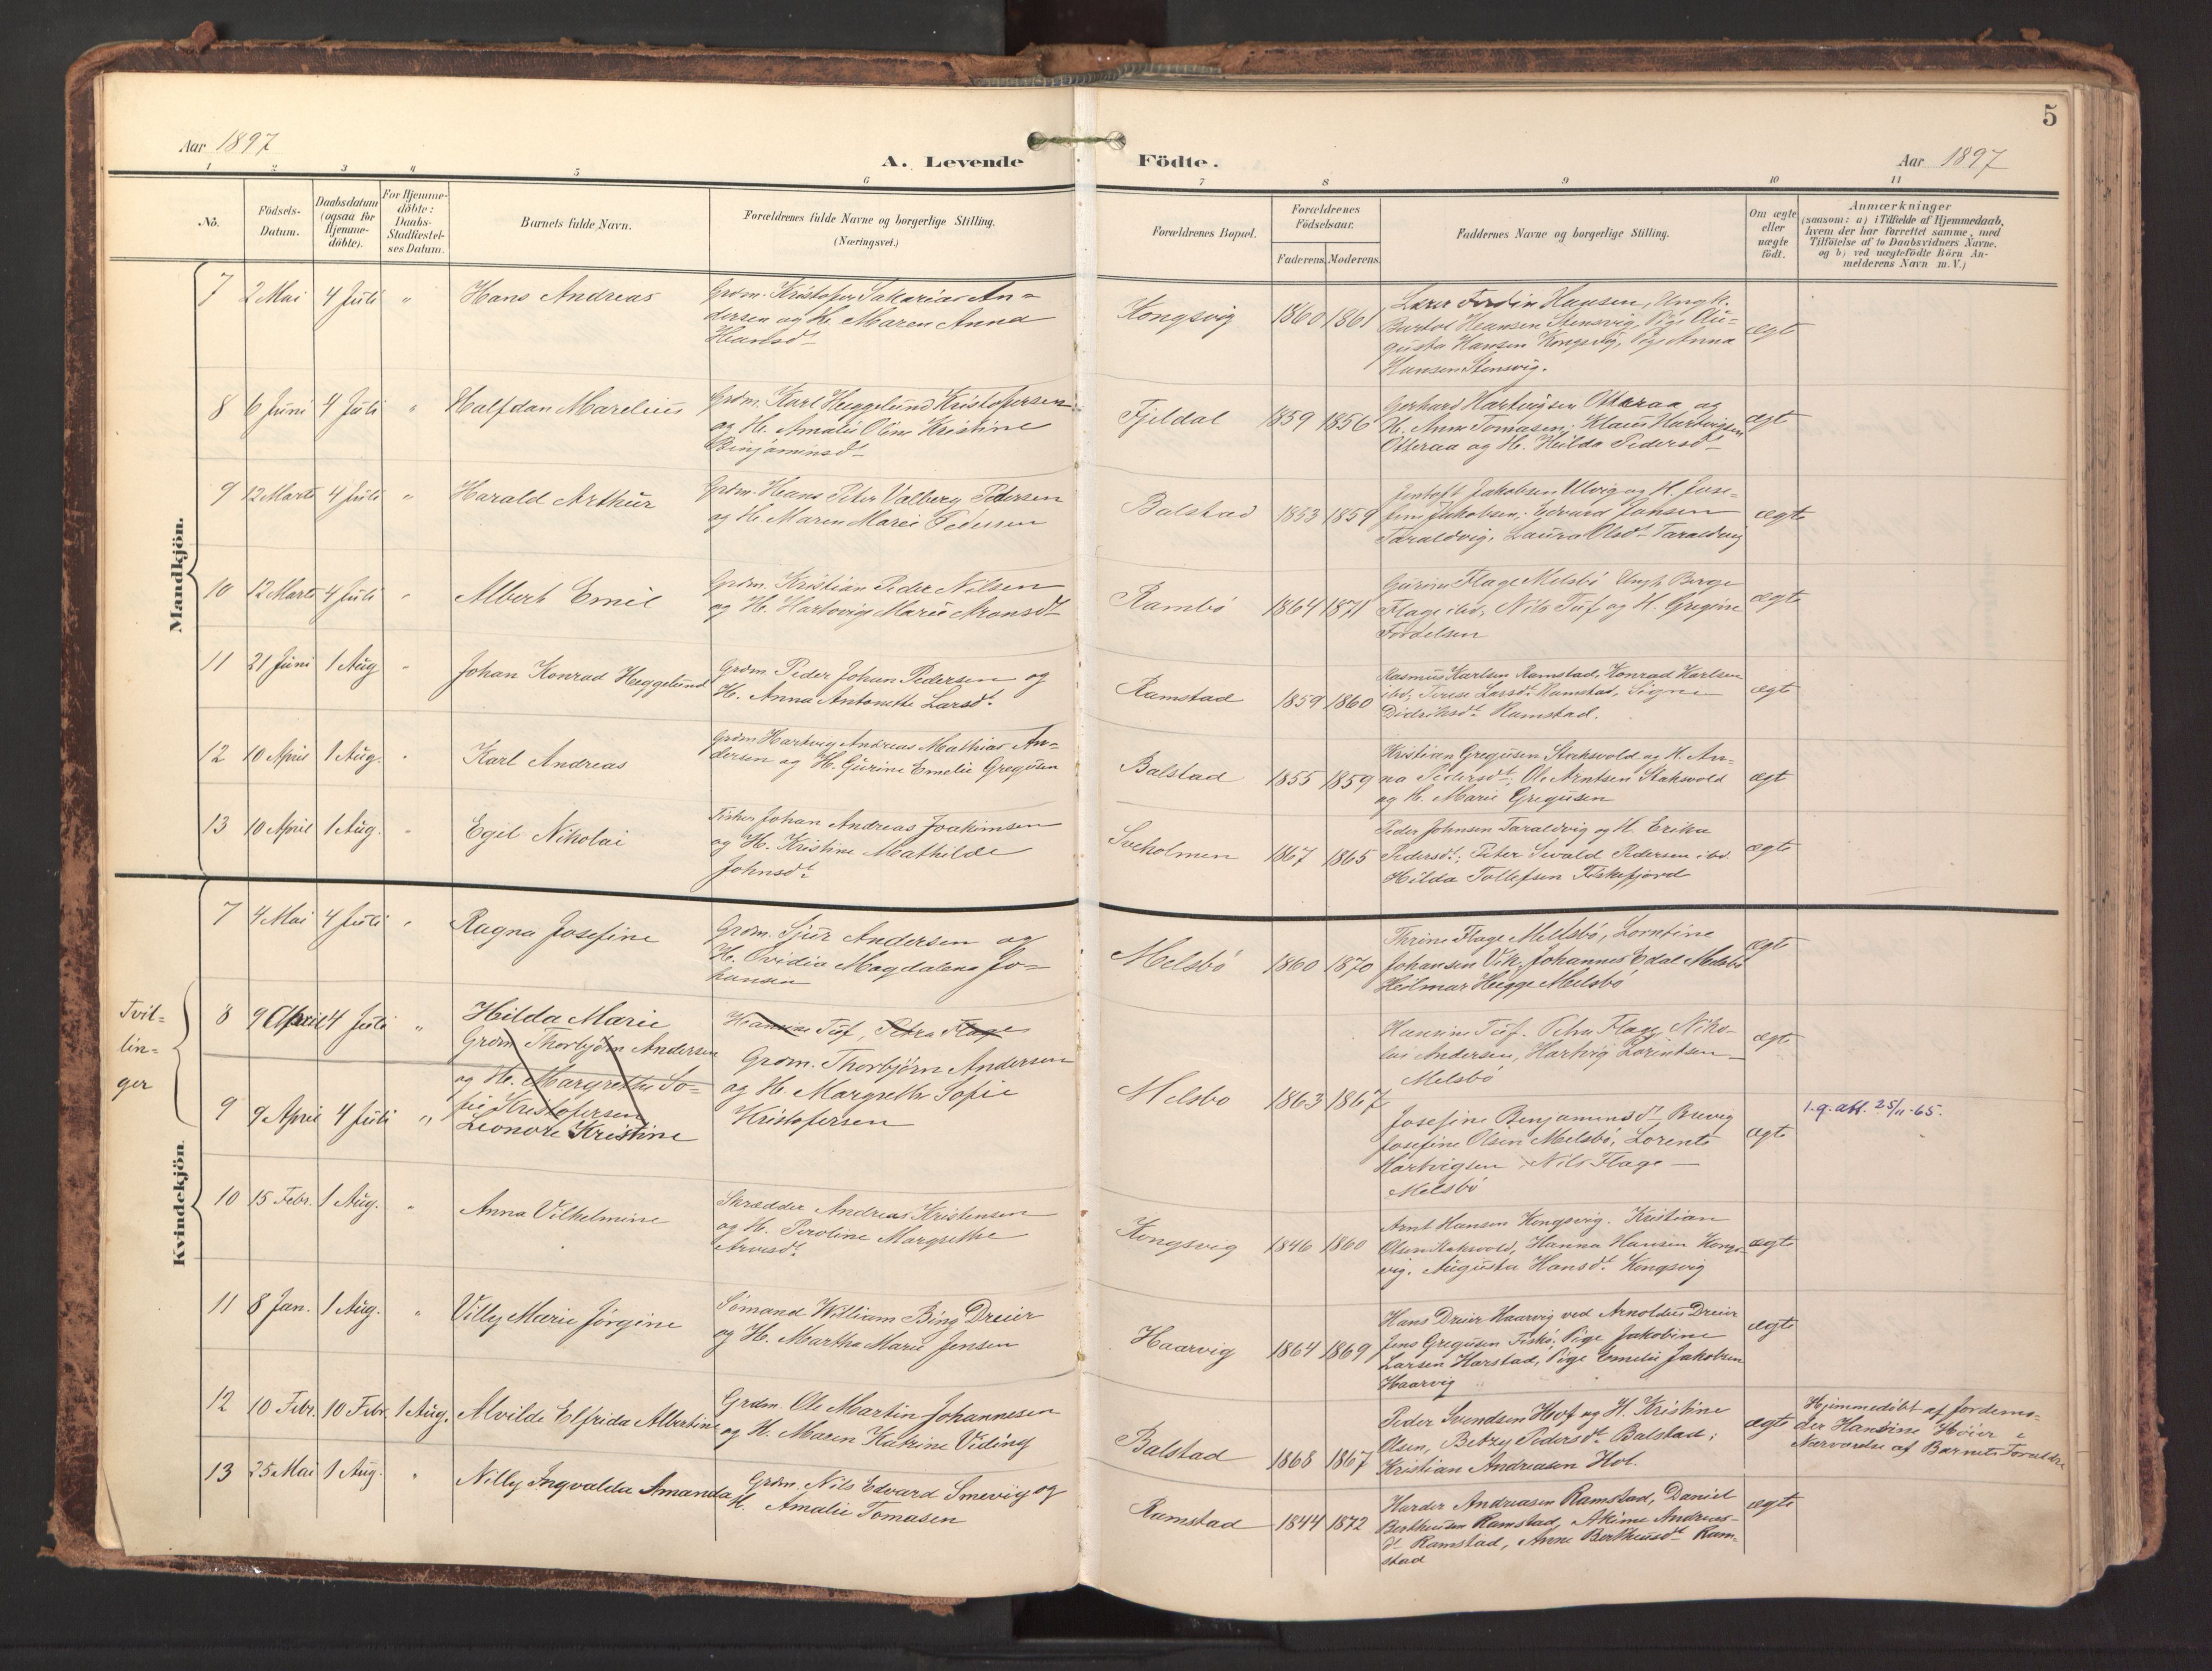 5
Aar 1897
A. Levende
Födte.
Aar 1897
1 2 3 4 5 6 7 8 9 10 11
No.
Födsels-
Datum.
Daabsdatum
(ogsaa for
Hjemme-
döbte).
For Hjemme-
döbte:
Daabs-
Stadfæstel-
ses Datum.
Barnets fulde Navn.
Forældrenes fulde Navne og borgerlige Stilling.
(Næringsvei.)
Forældrenes Bopæl.
Forældrenes
Födselsaar.
Faderens. Moderens.
Faddernes Navne og borgerlige Stilling.
Om ægte
eller
uægte
födt.
Anmærkninger
(saasom: a) i Tilfælde af Hjemmedaab,
hvem der har forrettet samme, med
Tilföielse af to Daabsvidners Navne.
og b) ved uægtefödte Börn An-
melderens Navn m. V.)
Mandkjön.
7 2 Mai 4 Juli " Hans Andreas
Grdm. Kristofer Sakarias An-
dersen og H. Maren Anna
Hansdt
Kongsvig 1860 1861
Hansen, Ungk.
Bertol Hansen Stensvig, Pige Au-
gusta Hansen Kongsvig, Pige Anna
Hansen Stensvig.
ægte
8 6 Juni 4 Juli " Halfdan Marelius
Grdm. Karl Heggelund Kristofersen
og H. Amalie Oline Kristine
Binjaminsdt
Fjeldal 1859 1856
Gerhard Hartvigsen Otteraa og
H. Anne Tomasen; Klaus Hartvigsen
Otteraa og H. Hilda Pedersdt
ægt
9 12 Marts 4 Juli " Harald Arthur
Grdm. Hans Peter Valberg Pedersen
og H. Maren Marie Pedersen
Balstad 1853 1859
Jentoft Jakobsen Ulvig og H. Jose-
fine Jakobsen; Edvard Jansen
Taraldvig, Laura Olsdt Taraldvig
ægte
10 12 Marts 4 Juli " Albert Emil
Grdm. Kristian Peder Nilsen
og H. Hartvvige Marie Aronsdt
Rambö 1864 1871
Gurine Flage Melsbö Ungk. Berge
Flage ibd, Nils Tuf og H. Gregine
Fordelsen
ægte
11 21 Juni 1 Aug " Johan Konrad Heggelund
Grdm Peder Johan Pedersen og
H. Anna Antonette Larsdt.
Ramstad 1859 1860
Rasmus Karlsen Ramstad, Konrad Karlsen
ibd, Terese Larsdt Ramstad, Signe
Didriksdt Ramstad.
ægt
12 10 April 1 Aug. " Karl Andreas
Grdm Hartvig Andreas Mathias An-
dersen og H. Gurine Emelie Gregusen
Balstad 1855 1859
Kristian Gregusen Staksvold og H. An-
na Pedersdt; Ole Arntsen Staksvold
og H. Marie Gregusen
ægt
13 10 April 1 Aug. " Egil Nikolai
Fisker Johan Andreas Joakimsen
og H. Kristine Mathilde
Johnsdt
Sveholmen 1867 1865
Peder Johnsen Taraldvig og H. Erika
Pedersdt; Peter Sivald Pedersen ibd.
Hilda Tollefsen Fiskefjord
ægte
Kvindekjön.
7 4 Mai 4 Juli " Ragna Josefine
Grdm. Sjur Andersen og
H. Ovidia Magdalena Jo-
hansen
Melsbö 1860 1870
Thrine Flage Melsbö, Lorntine
Johansen Vik, Johannes Edal Melsbö
Hilmar Hegge Melsbö
ægte
Tvil-
lin-
ger
8 9 April 4 Juli " Hilda Marie
Grdm Thorbjörn Andersen
og H. Margrethe So-
fie Kristofersen
Hansine Tuf, Petra Flage
Grdm. Thorbjörn Andersen
og H. Margrethe Sofie
Kristofersen
Melsbo 1863 1867
Hansine Tuf, Petra Flage, Niko-
lai Andersen, Hartvig Lorintsen
Melsbö
ægte
9 9 April 4 Juli " Leonore Kristine
Josefine Benjaminsdt Brevig
Josefine Olsen Melsbö, Lorents
Hartvigsen, Nils Flage
Melsbö
ægte
1. g. att. 25/11-65.
10 15 Febr. 1 Aug. " Anna Vilhelmine
Skrædder Andreas Kristensen
og H. Peroline Margrethe
Arnesdt
Kongsvig 1846 1860
Arnt Hansen Kongsvig. Kristian
Olsen Staksvold, Hanna Hansen Kongs-
vig. Augusta Hansdt. Kongsvig
ægte
11 8 Jan. 1 Aug. " Villy Marie Jörgine
Sömand William Bing Dreier
og H. Martha Marie Jensen
Haarvig 1864 1869
Hans Dreier Haarvig ved Arnoldus Dreier
Jens Gregusen Fiskö, Pige Jakobine
Larsen Harstad, Pige Emelie Jakobsen
Haarvig
ægte
12 10 Febr. 10 Febr. 1 Aug. Alvilde Elfrida Albertine
Grdm. Ole Martin Johannesen
og H. Maren Katrine Viding
Balstad 1868 1867
Peder Svendsen Hof og H. Kristine
Olsen, Betzy Pedersdt Balstad;
Kristian Andreasen Hol.
ægte
Hjemmedöbt af Jordemo-
der Hansine Höier i
Nærværelse af Barnets Forældre
13 25 Mai 1 Aug. " Nilly Ingvalda Amanda
Grdm. Nils Edvard Smevig og
H. Amalie Tomasen
Ramstad 1844 1872
Harder Andreasen Ramstad, Daniel
Bertheusen Ramstad, Akime Andreas-
dt Ramstad, Anne Bertheusdt Ram-
stad
ægte